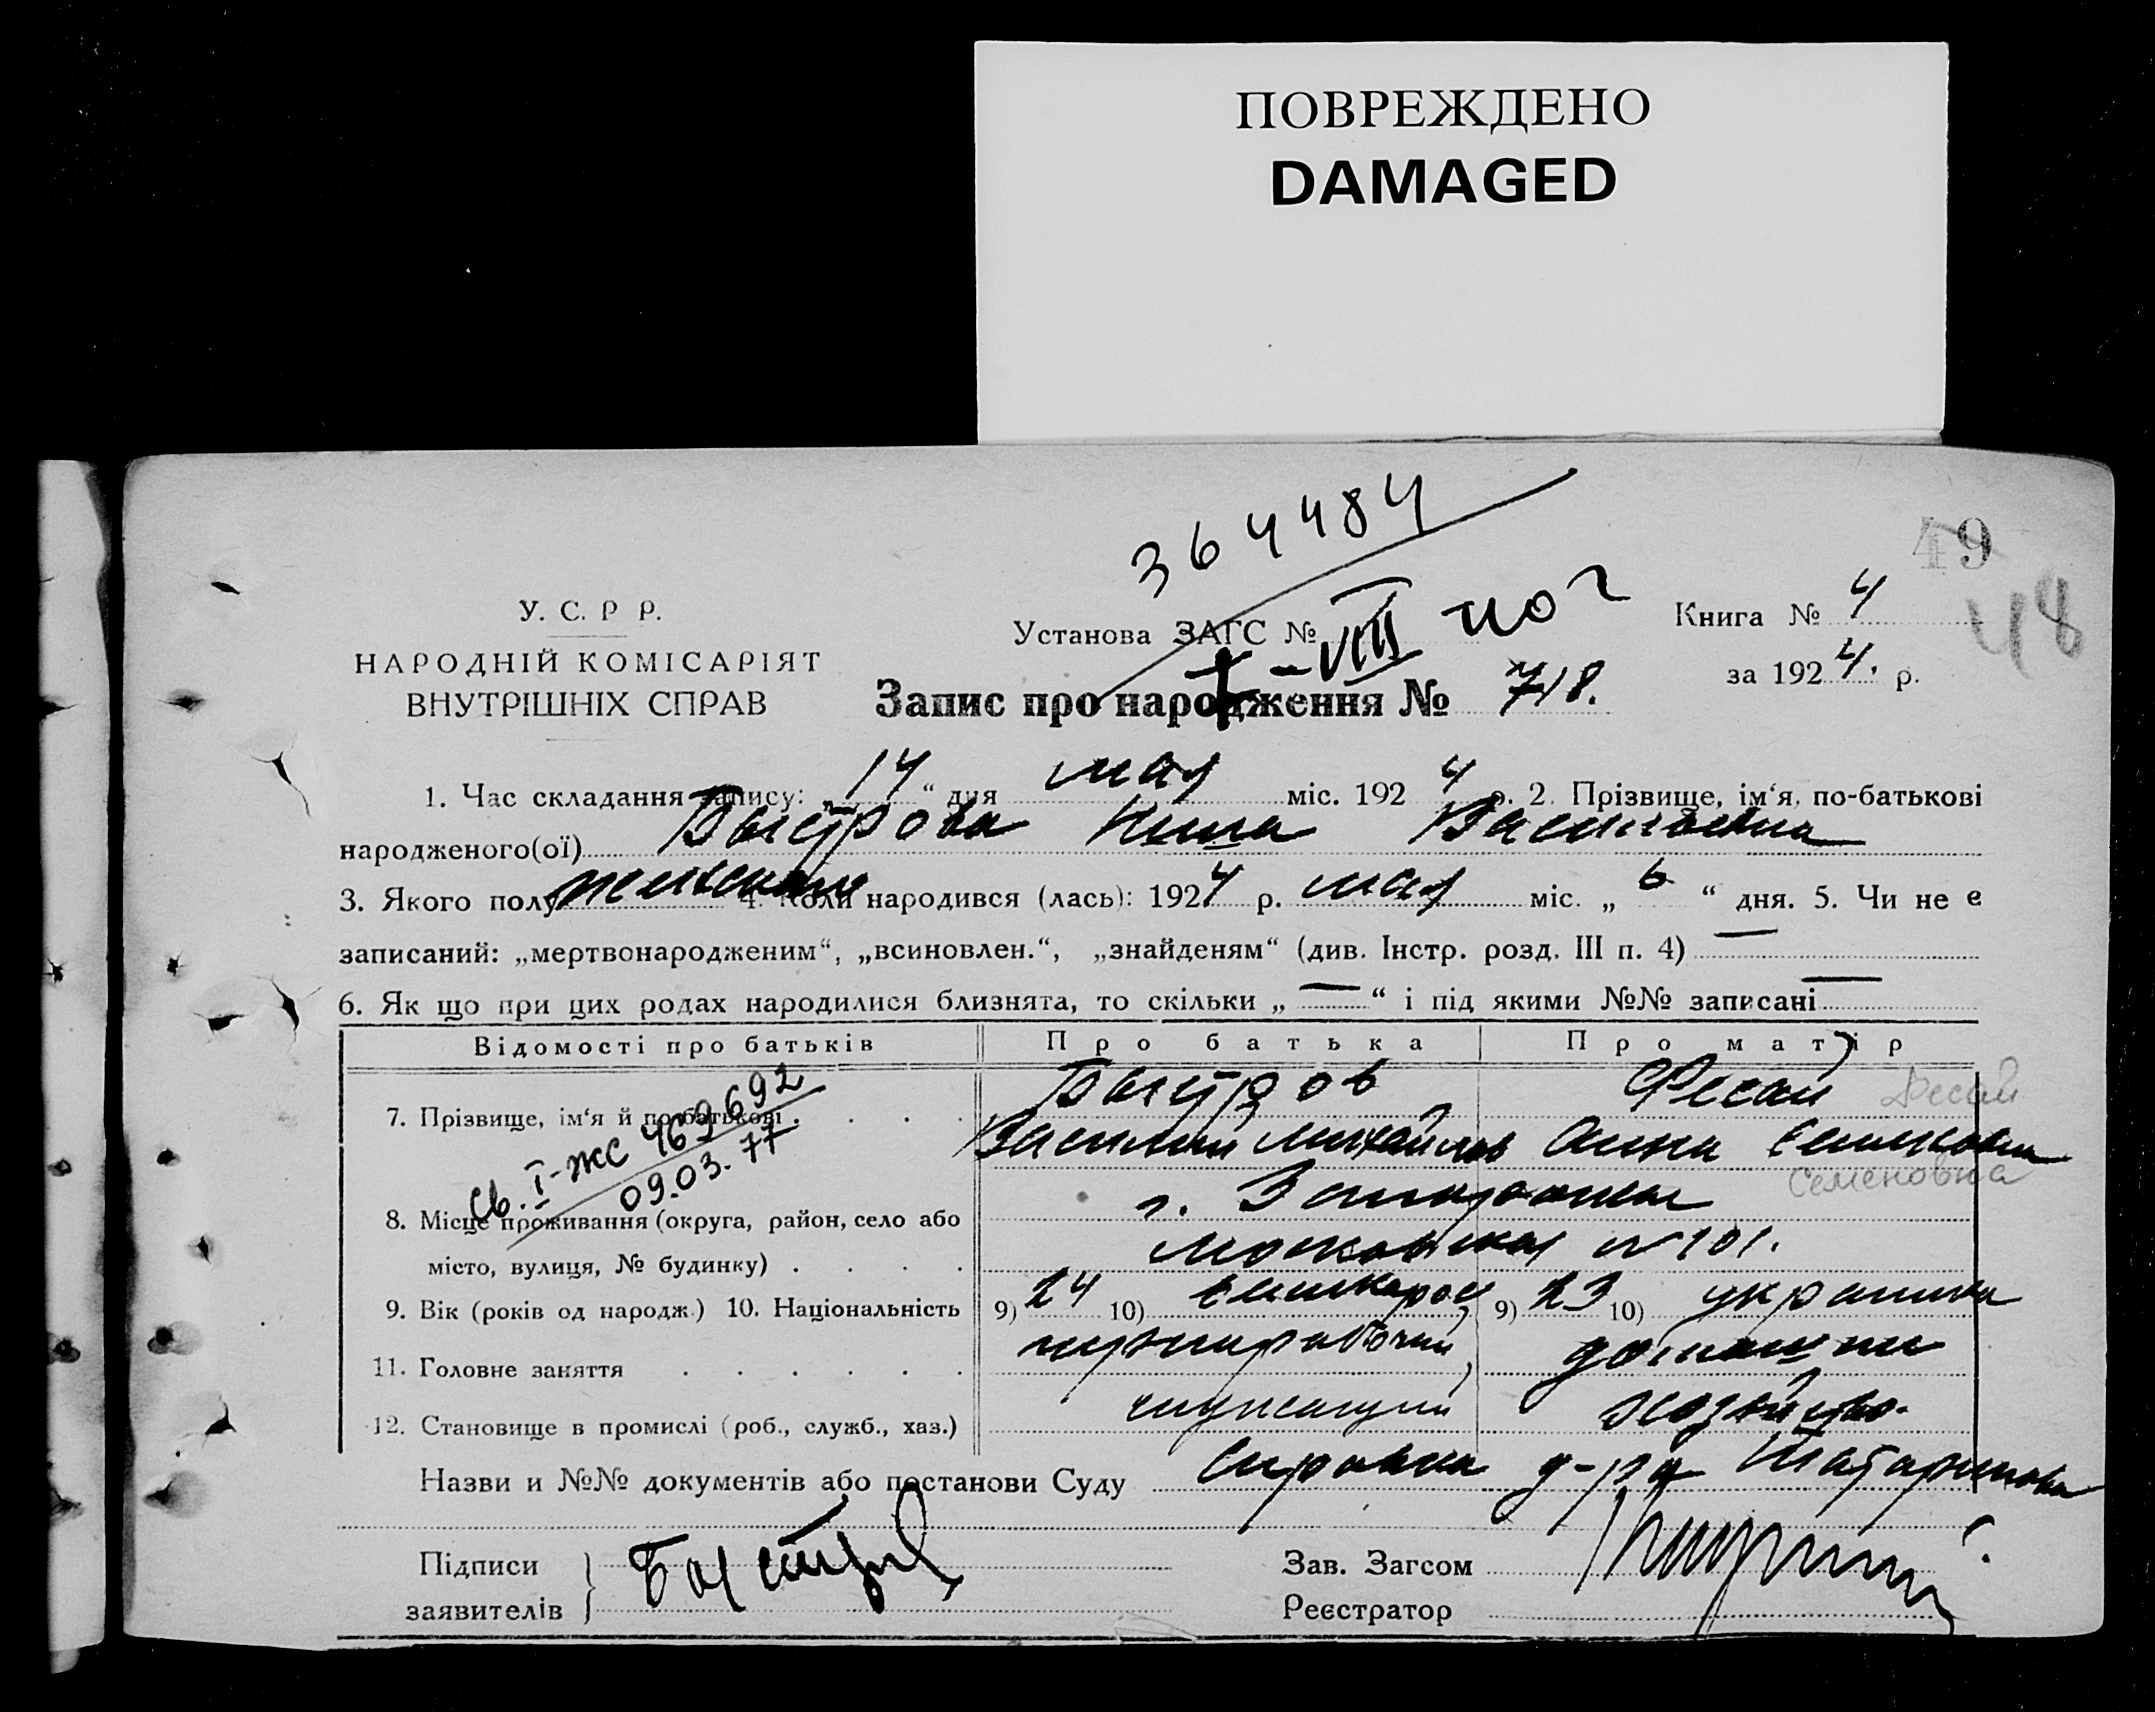 ПОВРЕЖДЕНО
DAMAGED
49
48
364484
У. С. Р Р.
НАРОДНІЙ КОМІСАРІЯТ
ВНУТРІШНІХ СПРАВ
Установа ЗАГС №
VIII
Книга № 4
за 1924. р.
Запис про народження № 718.
1. Час складання запису: „14“ дня мая міс. 1924 р. 2. Прізвище, ім‘я, по-батькові
народженого(ої) Быстрова Нина Васильевна
3. Якого полу женская 4. Коли народився (лась): 1924 р. мая міс. „6“ дня. 5. Чи не є
записаний: „мертвонародженим“, „всиновлен.“, „знайденям“ (див. Інстр. розд. III п. 4) —
6. Як що при цих родах народилися близнята, то скільки „—“ і під якими №№ записані —
Відомості про батьків Про батька Про матір
7. Прізвище, ім‘я й по-батькові Быстров Фесай Фесай
Василий Михайлов Анна
Семеновна
Св. I-ЖС 469692
09.03.77
8. Місце проживання (округа, район, село або г. Запорожье
місто, вулиця, № будинку) Московская № 101.
9. Вік (років од народж.) 10. Національність 9) 24 10) 9) 23 10) украинка
11. Головне заняття домашни
12. Становище в промислі (роб., служб., хаз.) служащий хозяйство.
Назви и №№ документів або постанови Суду Справка д-ра
Підписи
заявителів Быстров
Зав. Загсом
Реєстратор